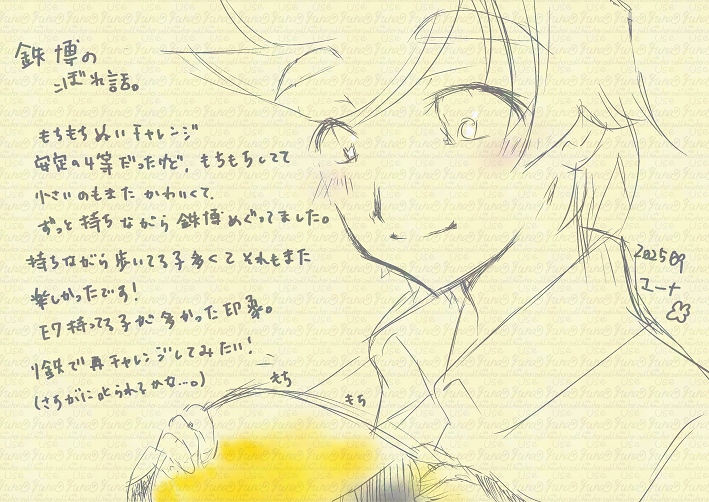 鉄博の
こぼれ話。
もちもちぬいチャレンジ
安定の4等だったけど、もちもちしてて
小さいのもまたかわいくて、
ずっと持ちながら鉄博めぐってました。
持ちながら歩いてる子多くてそれもまた
楽しかったです!
E7持ってる子が多かった印象。
リ鉄で再チャレンジしてみたい!
(さすがに叱られるかな…。)
もち
もち
202509
ユーナ